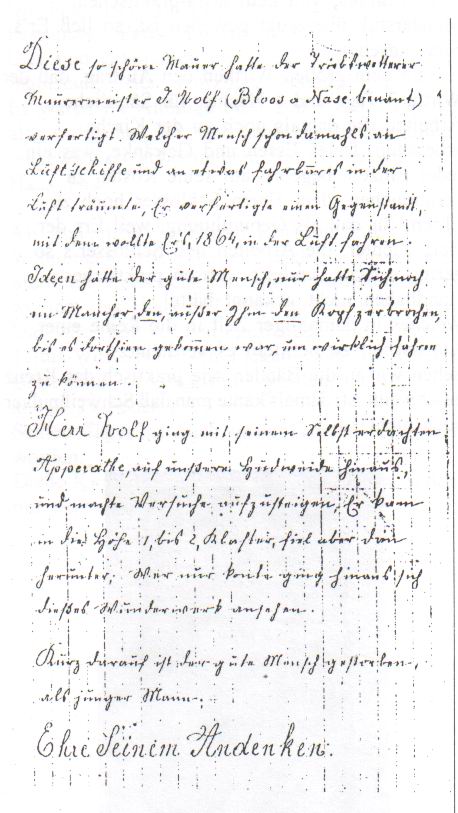 Diese so schöne Mauer hatte der Triebswetterer
Maurermeister J. Wolf (Bloos a Nase benant)
verfertigt. Welcher Mensch schon damahls an
Luftschiffe und an etwas fahrbares in der
Luft träumte, Er verfertigte einen Gegenstandt,
mit dem wollte Er's, 1864, in der Luft fahren.
Ideen hatte der gute Mensch, nur hatte Sich noch
ein Mancher den, außer Ihm den Kopf zerbrochen,
bis es dorthien gekommen war, um wirklich fahren
zu könen.
Herr Wolf ging mit seinem Selbst erdachten
Apperathe, auf unßere Hudweide hinaus,
und machte Versuche aufzusteigen, Er kam
in die Höhe 1, bis 2, Klafter, fiel aber dan
herunter. Wer nur konte ging hinaus sich
dießes Wunderwerk ansehen.
Kurz darauf ist der gute Mensch gestorben,
als junger Mann.
Ehre Seinem Andenken.